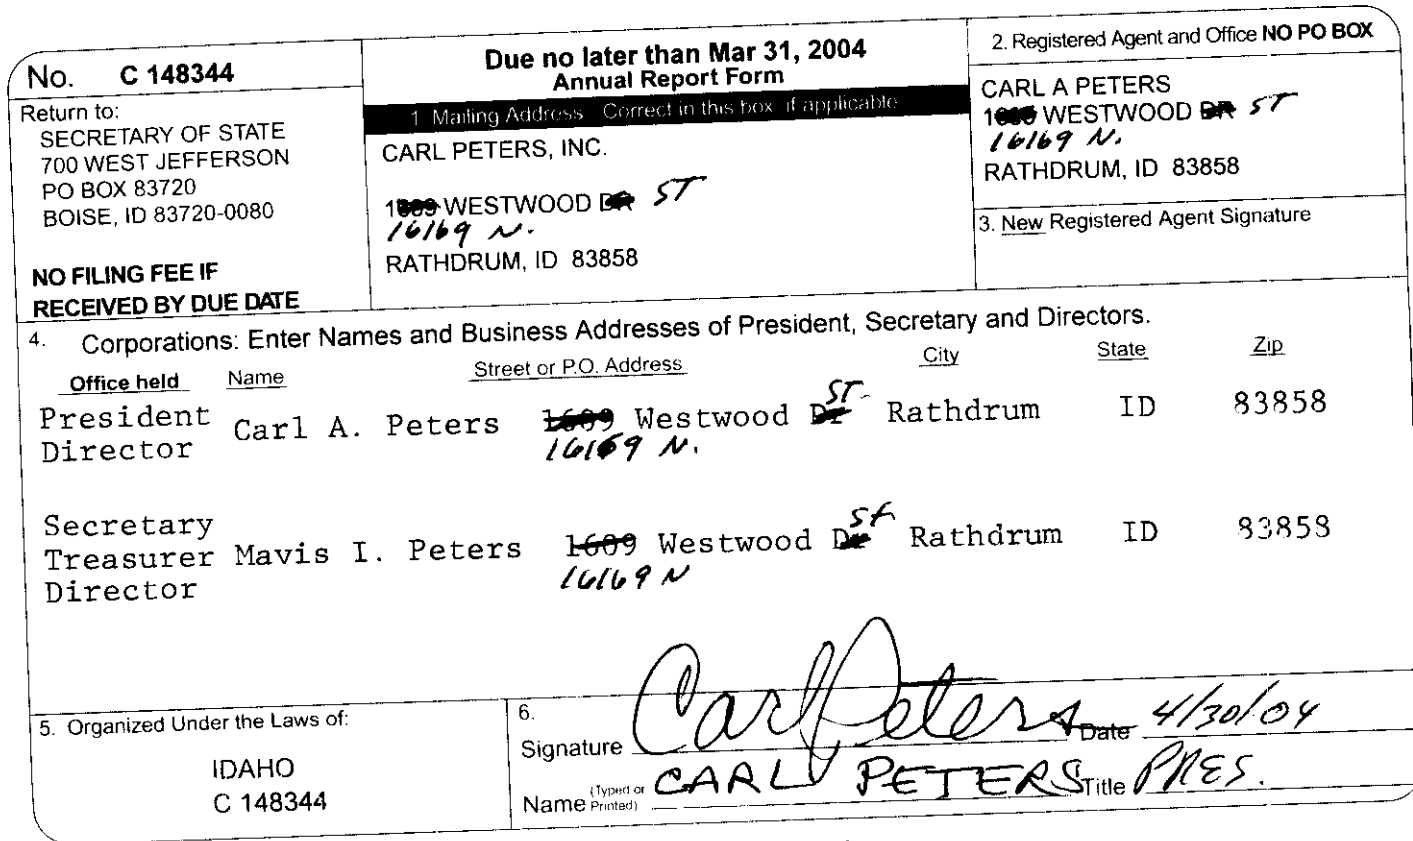 No. C 148344
Return to:
SECRETARY OF STATE
700 WEST JEFFERSON
PO BOX 83720
BOISE, ID 83720-0080
NO FILING FEE IF
RECEIVED BY DUE DATE
Due no later than Mar 31, 2004
Annual Report Form
1 Mailing Address Correct in this box if applicable
CARL PETERS, INC.
1609 WESTWOOD DR ST
16169 N.
RATHDRUM, ID 83858
2. Registered Agent and Office NO PO BOX
CARL A PETERS
WESTWOOD DR ST
16169 N.
RATHDRUM, ID 83858
3. New Registered Agent Signature
4. Corporations: Enter Names and Business Addresses of President, Secretary and Directors.
Office held Name Street or P.O. Address City State Zip
ST
President Carl A. Peters 1609 Westwood Dr Rathdrum ID 83858
Director 16169 N.
Secretary St
Treasurer Mavis I. Peters 1609 Westwood Dr Rathdrum ID 83858
Director 16169 N
5. Organized Under the Laws of:
IDAHO
C 148344
6.
Signature Carl Peters Date 4/30/04
Name (Typed or Printed) CARL PETERS Title PRES.